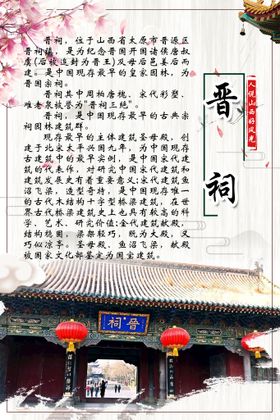 晋祠，位于山西省太原市晋源区
晋祠镇，是为纪念晋国开国诸侯唐叔
虞(后被追封为晋王)及母后邑姜后而
建。是中国现存最早的皇家园林，为
晋国宗祠。
晋祠其中周柏唐槐、宋代彩塑、
难老泉被誉为"晋祠三绝"。
晋祠，是中国现存最早的古典宗
祠园林建筑群。
现存最早的主体建筑圣母殿，创
建于北宋太平兴国九年，为中国现存
古建筑中的最早实例，是中国宋代建
筑的代表作，对研究中国宋代建筑和
建筑发展史有着重要意义;宋代建筑鱼
沼飞梁，造型奇特，是中国现存唯一
的古代木结构十字型桥梁建筑，在世
界古代桥梁建筑史上也具有较高的科
学、艺术、研究价值;金代建筑献殿，
结构稳固，梁架轻巧，既为大殿，又
巧似凉亭。圣母殿、鱼沼飞梁、献殿
被国家文化部鉴定为国宝建筑。
晋祠
人说山西好风光
祠晋